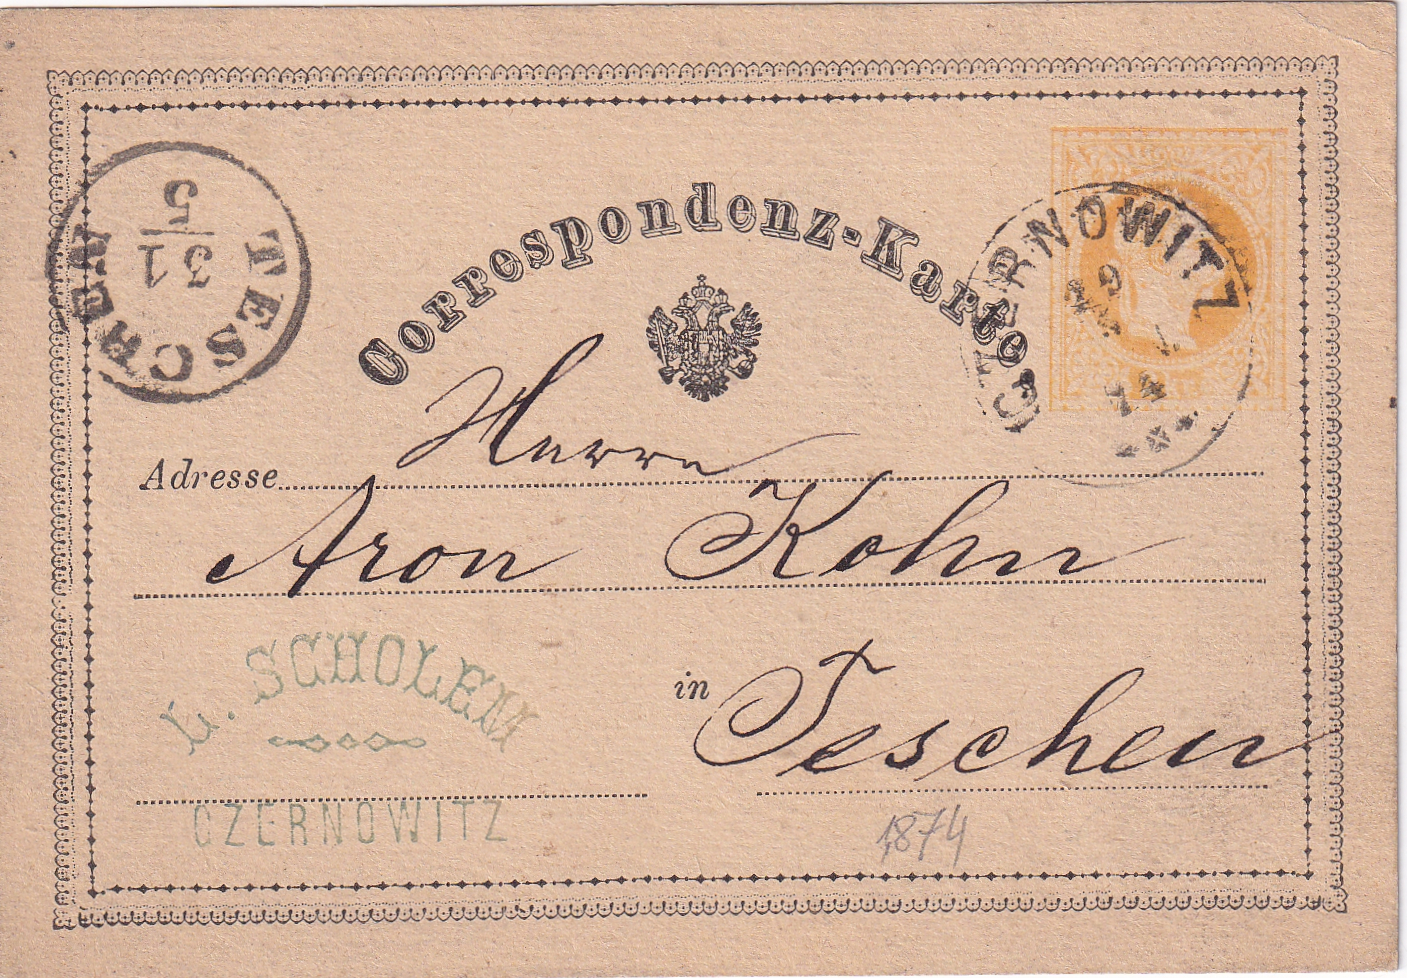 Correspondenz-Karte.
CZERNOWITZ
TESCHEN
31
5
Adresse Herrn
Aron Kohn
L. SCHOLEM
in Teschen
CZERNOWITZ
1874